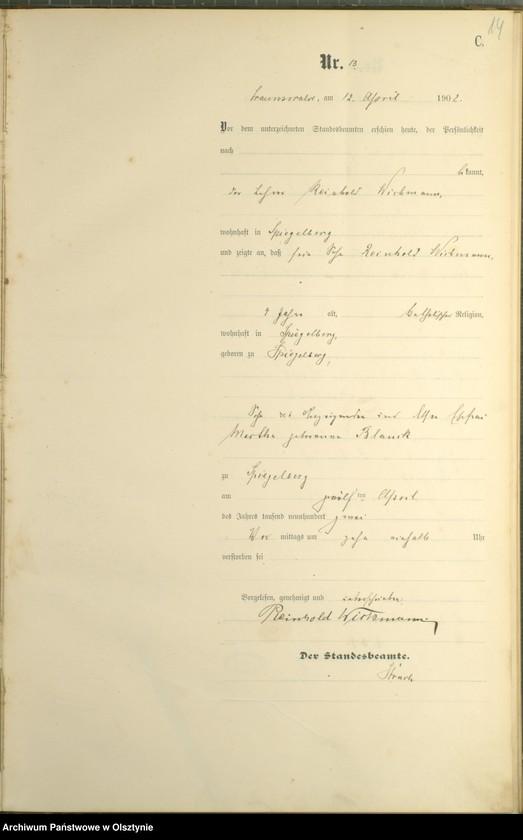 14
C.
Nr. 13
Braunswalde, am 12. April 1902.
Vor dem unterzeichneten Standesbeamten erschien heute, der Persönlichkeit
nach
bekannt,
der Lehrer Reinhold Wichmann,
wohnhaft in Spiegelberg
und zeigte an, daß sein Sohn Reinhold Wichmann,
Jahre alt, katholischer Religion,
wohnhaft in Spiegelberg,
geboren zu Spiegelberg,
Sohn des Anzeigenden und Ehefrau
Martha geborenen Blanck
zu Spiegelberg
am zwölften April
des Jahres tausend neunhundert zwei
Vor mittags um zehn einhalb Uhr
verstorben sei
Vorgelesen, genehmigt und unterschrieben
Reinhold Wichmann
Der Standesbeamte.
Archiwum Państwowe w Olsztynie